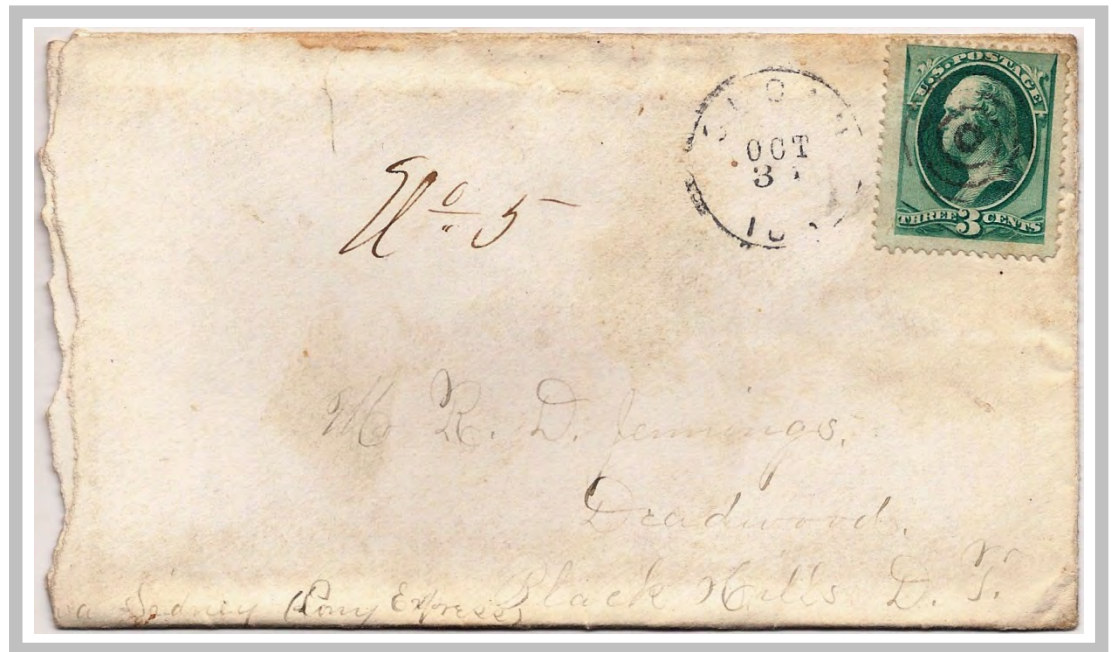 U.S. POSTAGE
THREE 3 CENTS
OCT
No 5
Mr R. D. Jennings,
Deadwood,
Black Hills D. T.
Sidney (Pony Express)